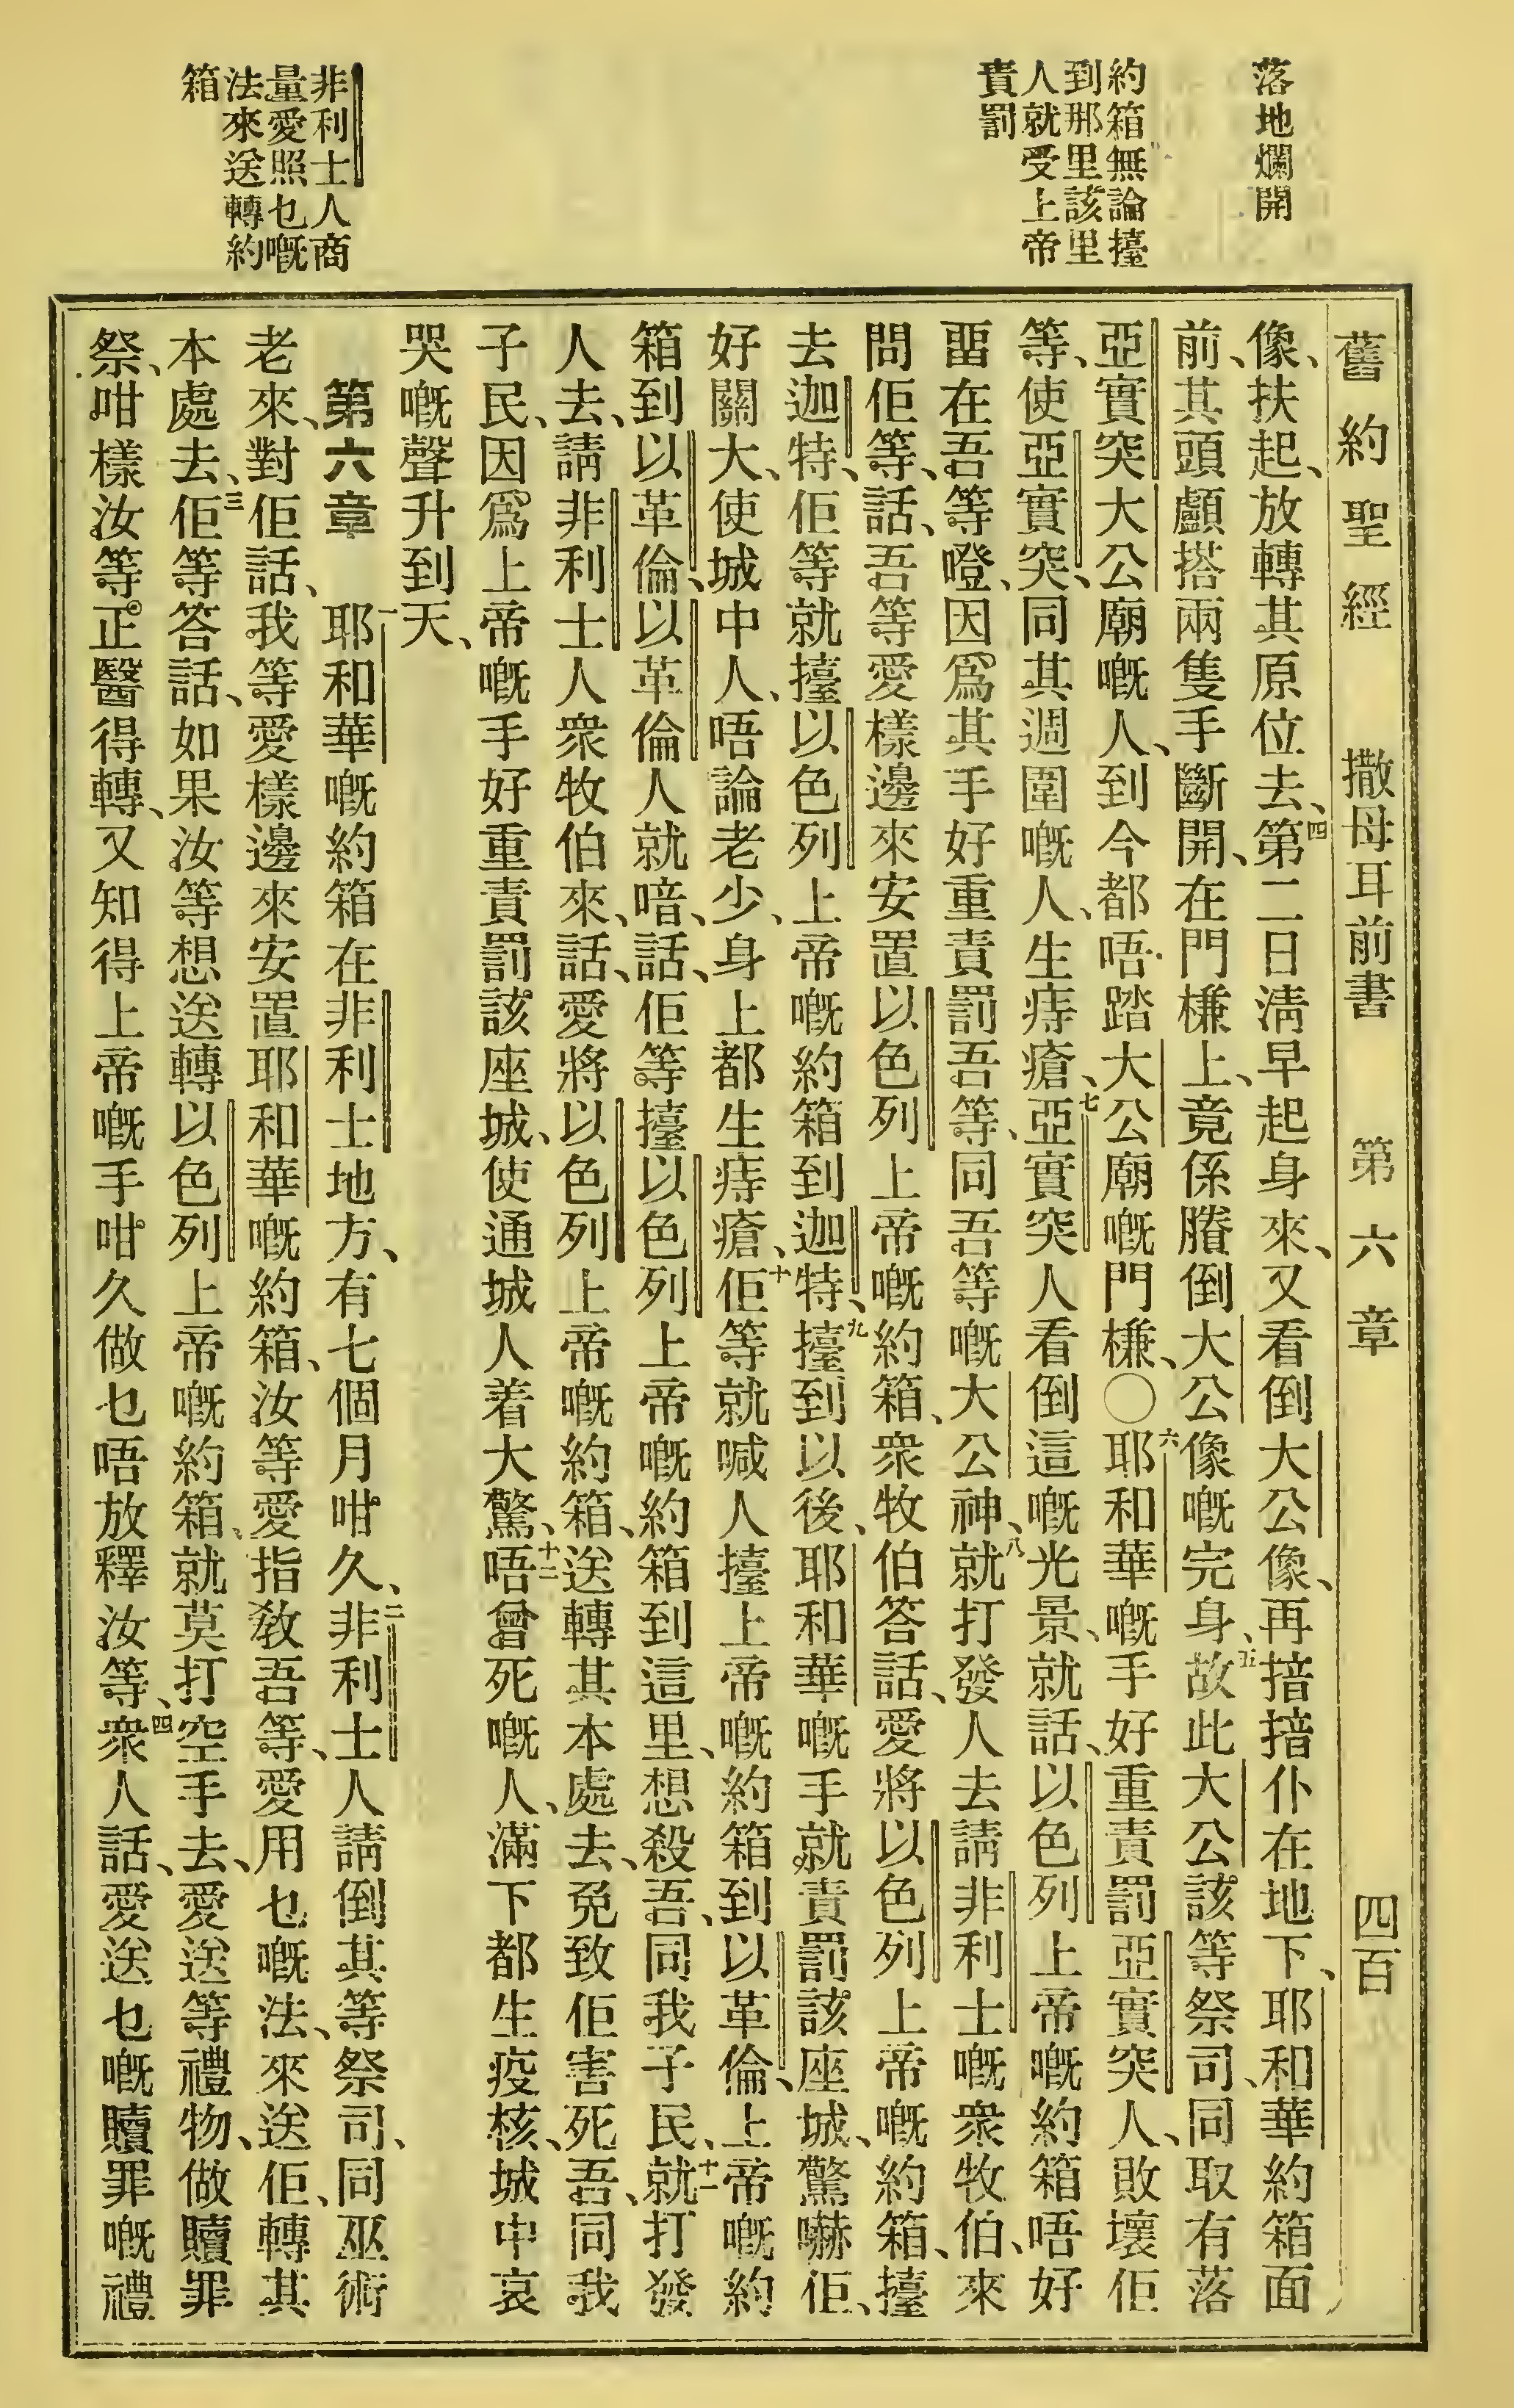 落地爛開
約箱無論擡
到那里該里
人就受上帝
責罰
非利士人商
量愛照乜嘅
法來送轉約
箱
舊約聖經 撒母耳前書 第六章 四百
像、扶起、放轉其原位去、四第二日淸早起身來、又看倒大公像、再揞揞仆在地下、耶和華約箱面
前、其頭顱搭兩隻手斷開、在門槏上、竟係賸倒大公像嘅完身、五故此大公該等祭司、同取有落
亞實突大公廟嘅人、到今都唔踏大公廟嘅門槏、〇六耶和華嘅手好重責罰亞實突人、敗壞佢
等、使亞實突、同其週圍嘅人、生痔瘡、七亞實突人看倒這嘅光景、就話、以色列上帝嘅約箱唔好
畱在吾等噔、因爲其手好重責罰吾等、同吾等嘅大公神、八就打發人去請非利士嘅衆牧伯、來
問佢等、話、吾等愛樣邊來安置以色列上帝嘅約箱、衆牧伯答話、愛將以色列上帝嘅約箱、擡
去迦特、佢等就擡以色列上帝嘅約箱到迦特、九擡到以後、耶和華嘅手就責罰該座城、驚嚇佢、
好關大、使城中人、唔論老少、身上都生痔瘡、十佢等就喊人擡上帝嘅約箱到以革倫、上帝嘅約
箱到以革倫、以革倫人就喑、話、佢等擡以色列上帝嘅約箱到這里、想殺吾、同我子民、十一就打發
人去、請非利士人衆牧伯來、話、愛將以色列上帝嘅約箱、送轉其本處去、免致佢害死吾、同我
子民、因爲上帝嘅手好重責罰該座城、使通城人着大驚、十二唔曾死嘅人、滿下都生疫核、城中哀
哭嘅聲升到天、
第六章 一耶和華嘅約箱在非利士地方、有七個月咁久、二非利士人請倒其等祭司、同巫術
老來、對佢話、我等愛樣邊來安置耶和華嘅約箱、汝等愛指敎吾等、愛用乜嘅法、來送佢、轉其
本處去、三佢等答話、如果汝等想送轉以色列上帝嘅約箱、就莫打空手去、愛送等禮物、做贖罪
祭、咁樣汝等正醫得轉、又知得上帝嘅手咁久做乜唔放釋汝等、四衆人話、愛送乜嘅贖罪嘅禮